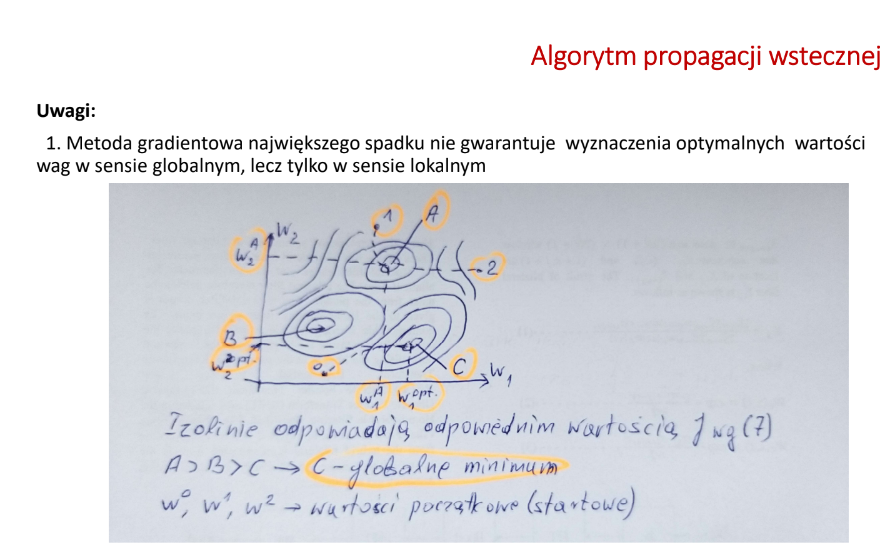 Algorytm propagacji wstecznej
Uwagi:
1. Metoda gradientowa największego spadku nie gwarantuje wyznaczenia optymalnych wartości
wag w sensie globalnym, lecz tylko w sensie lokalnym
1 A
W₂
W₂ᴬ
2
B
W₂ᵒᵖᵗ·
0
C
W₁
W₁ᴬ W₁ᵒᵖᵗ·
Izolinie odpowiadają odpowiednim wartością J wg (7)
A > B > C → C - globalne minimum
w⁰, w¹, w² → wartości początkowe (startowe)